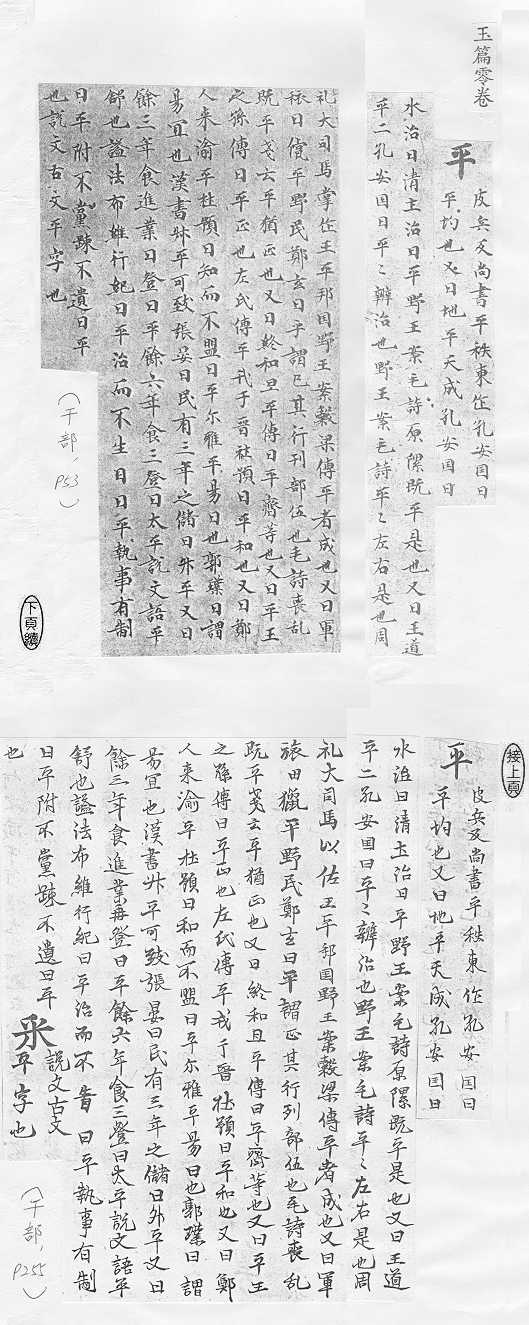 玉篇零卷
平
皮兵反尚書平秩東作孔安国曰
平均也又曰地平天成孔安国曰
水治曰清土治曰平野王案毛詩原隰既平是也又曰王道
平二孔安国曰平〻辨治也野王案毛詩平〻左右是也周
礼大司馬掌佐王平邦国野王案穀梁傳平者成也又曰軍
旅曰儐平野民鄭玄曰平謂已其行列部伍也毛詩喪乱
既平戔云平猶正也又曰終和旦平傳曰平齊等也又曰平王
之孫傳曰平正也左氏傳平戎于晉社預曰平和也又曰鄭
人来渝平杜預曰知而不盟曰平尔雅平易曰也郭璞曰謂
易宜也漢書升平可致張晏曰民有三年之儲曰升平又曰
餘三年食進業曰登曰平餘六年食三登曰太平說文語平
舒也謚法布維行紀曰平治而不生日曰平執事有制
曰平附不黨踈不遺曰平
也說文古文平字也
(干部,P53)
下頁續
接上頁
平
皮兵反尚書平秩東作孔安国曰
平均也又曰地平天成孔安国曰
水治曰清土治曰平野王案毛詩原隰既平是也又曰王道
平二孔安国曰平〻辨治也野王案毛詩平〻左右是也周
礼大司馬以佐王平邦国野王案穀梁傳平者成也又曰軍
旅田獵平野民鄭玄曰平謂正其行列部伍也毛詩喪乱
既平戔云平猶正也又曰終和且平傳曰平齊等也又曰平王
之孫傳曰平正也左氏傳平戎于晉杜預曰平和也又曰鄭
人来渝平杜預曰和而不盟曰平尔雅平易曰也郭璞曰謂
易宜也漢書升平可致張晏曰民有三年之儲曰升平又曰
餘三年食進業再登曰平餘六年食三登曰太平說文語平
舒也謚法布維行紀曰平治而不眚曰平執事有制
曰平附不黨踈不遺曰平釆說文古文平字也
也
(干部,P255)